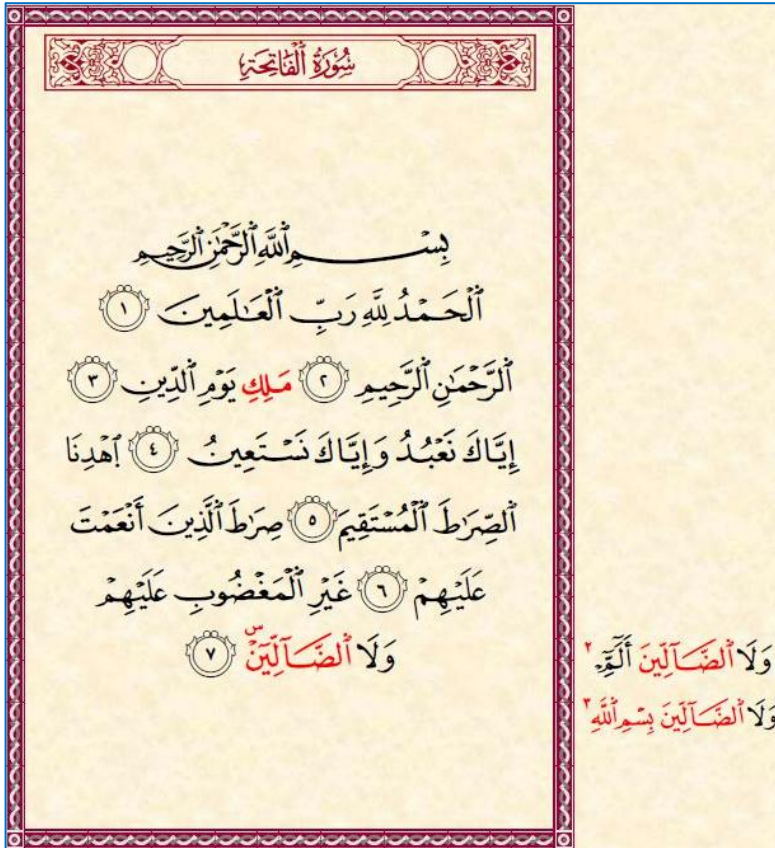 سُورَةُ ٱلْفَاتِحَةِ
بِسْمِ ٱللَّهِ ٱلرَّحْمَٰنِ ٱلرَّحِيمِ
ٱلْحَمْدُ لِلَّهِ رَبِّ ٱلْعَٰلَمِينَ ١
ٱلرَّحْمَٰنِ ٱلرَّحِيمِ ٢ مَلِكِ يَوْمِ ٱلدِّينِ ٣
إِيَّاكَ نَعْبُدُ وَإِيَّاكَ نَسْتَعِينُ ٤ ٱهْدِنَا
ٱلصِّرَٰطَ ٱلْمُسْتَقِيمَ ٥ صِرَٰطَ ٱلَّذِينَ أَنْعَمْتَ
عَلَيْهِمْ ٦ غَيْرِ ٱلْمَغْضُوبِ عَلَيْهِمْ
وَلَا ٱلضَّآلِّينَۜ ٧
وَلَا ٱلضَّآلِّينَ أَلَٓمِّٓۦ ٢
وَلَا ٱلضَّآلِّينَ بِسْمِ ٱللَّهِ ٣